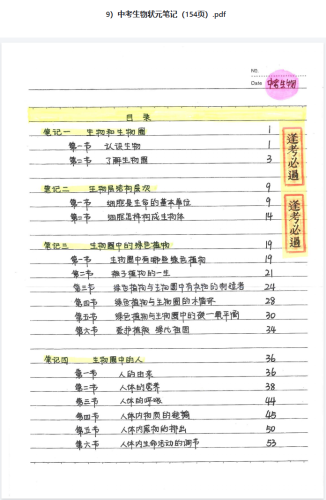 9）中考生物状元笔记（154页）.pdf
NO.
Date 中考生物
目 录
笔记一 生物和生物圈 1
第一节 认识生物 1
第二节 了解生物圈 3
逢考必過
笔记二 生物层结构层次 9
第一节 细胞是生命的基本单位 9
第二节 细胞怎样构成生物体 14
逢考必過
笔记三 生物圈中的绿色植物 19
第一节 生物圈中有哪些绿色植物 19
第二节 被子植物的一生 21
第三节 绿色植物与生物圈中有机物的制造者 24
第四节 绿色植物与生物圈的水循环 28
第五节 绿色植物与生物圈中的碳—氧平衡 30
第六节 爱护植被 绿化祖国 34
笔记四 生物圈中的人 36
第一节 人的由来 36
第二节 人体的营养 38
第三节 人体的呼吸 44
第四节 人体内物质的运输 45
第五节 人体内废物的排出 50
第六节 人体内生命活动的调节 53